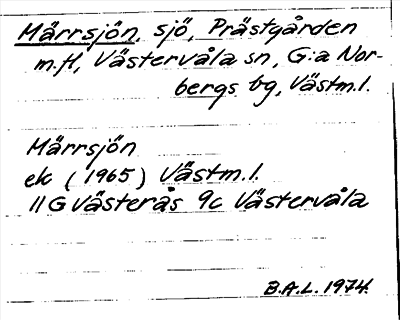 Märrsjön, sjö, Prästgården
m.fl, Västervåla sn, G:a Nor-
bergs bg, Västm.l.
Märrsjön
ek (1965) Västm.l.
11G Västerås 9c Västervåla
B.A.L. 1974.